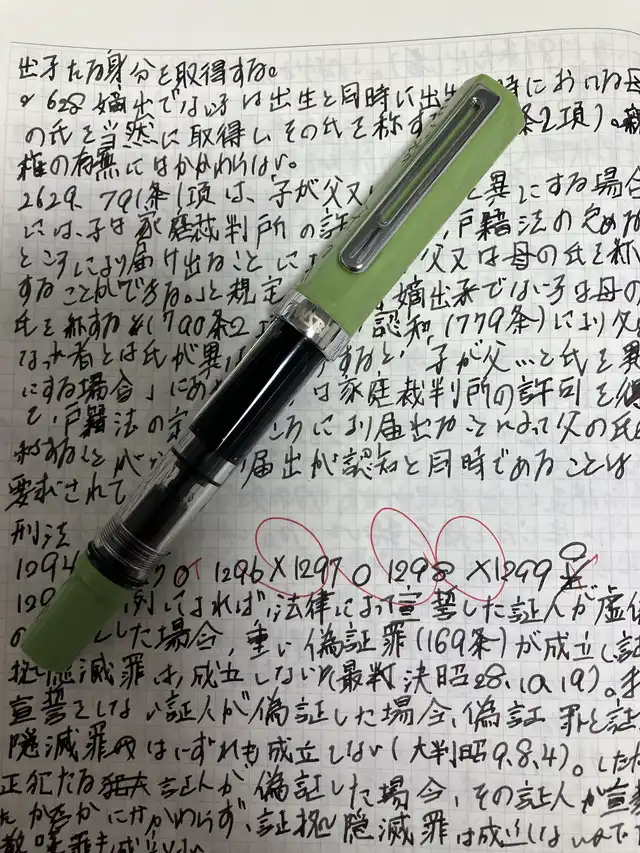 出子たる身分を取得する。
628 嫡出でない子は出生と同時に出生 時における母
の氏を当然に取得し、その氏を称す 条2項)。親
権の有無にはかかわらない。
2629、791条1項は、子が父又 と異にする場合
には、子は家庭裁判所の許 、戸籍法の定める
ところにより届け出ることに 父又は母の氏を称
することができる。」と規定 嫡出でない子は母の
氏を称する(790条2 認知(779条)により父
なった者とは氏が異 すると、「子が父…と氏を異
にする場合」にあ は家庭裁判所の許可を
て、戸籍法の定 ころにより届出ることによって父の氏
称することが 届出が認知と同時であることは
要求されて
刑法
1294 0 1296 × 1297 0 1298 × 1299
129 例によれば、法律によって宣誓した証人が虚偽
の した場合、重い偽証罪(169条)が成立し、証
拠隠滅罪は、成立しない(最判決昭28.10.19)。
宣誓をしない証人が偽証した場合、偽証罪と証
隠滅罪のはいずれも成立しない(大判昭9.8.4)。
正犯たる 証人が偽証した場合、その証人が宣誓
たか否かにかかわらず、証拠隠滅罪は成立しない
教唆罪も成立